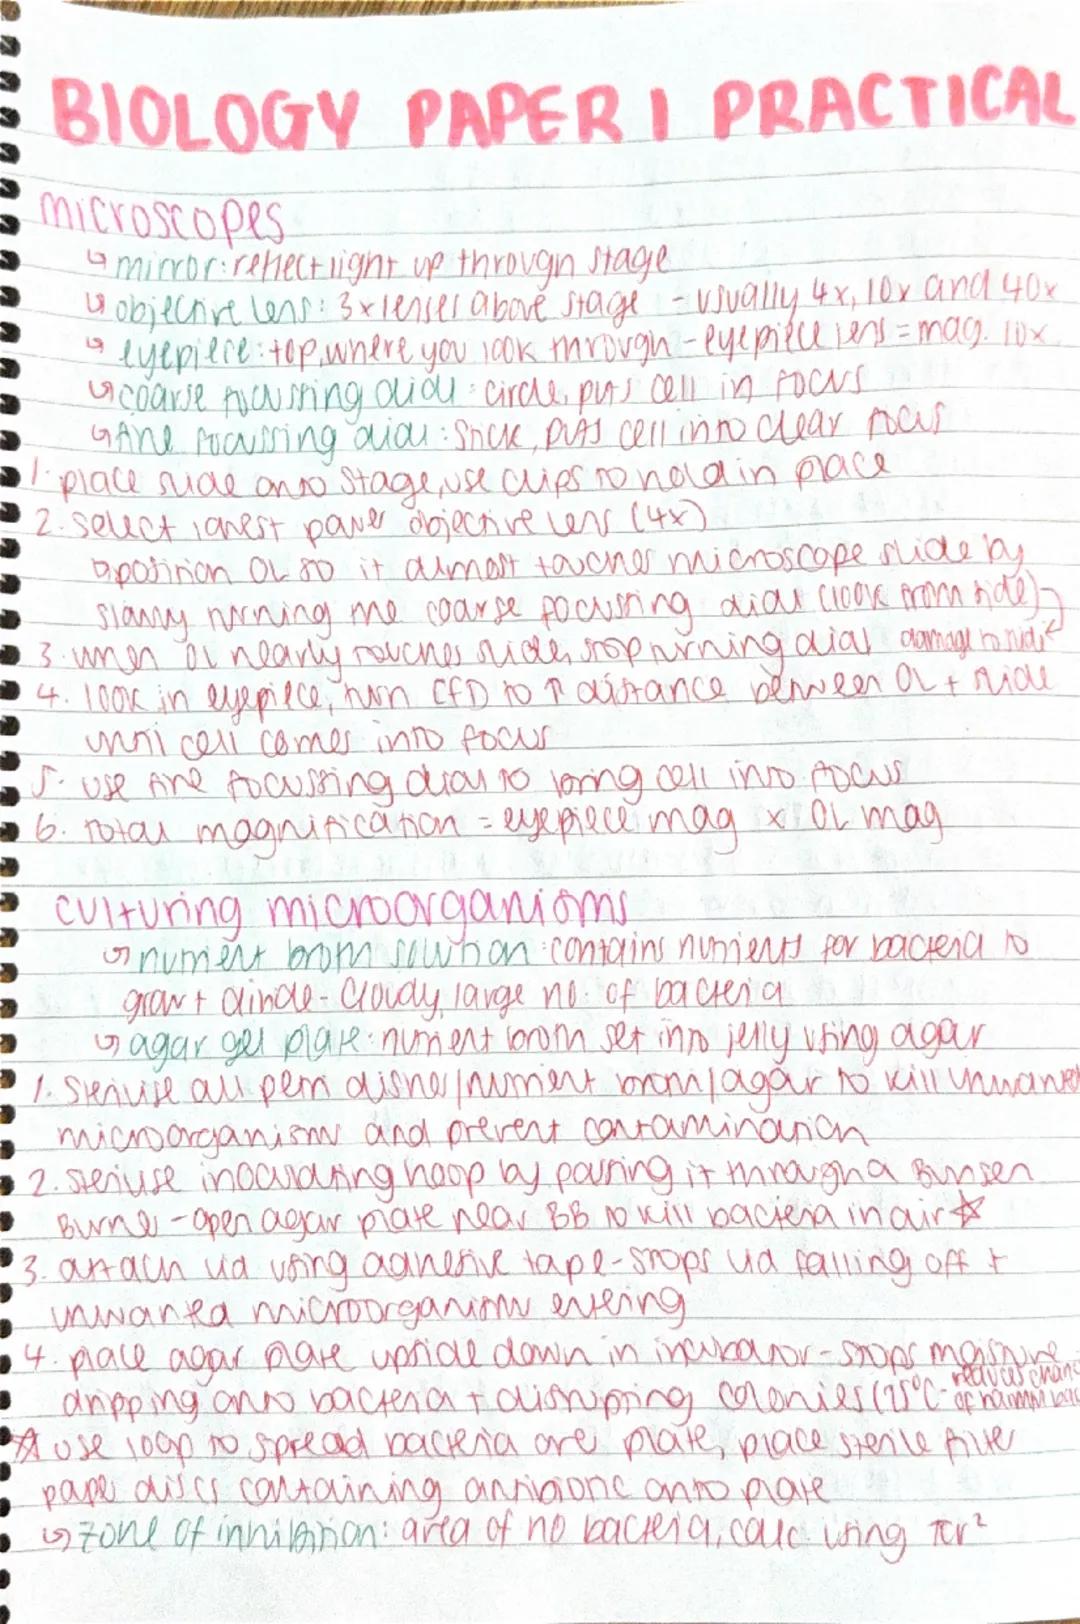 BIOLOGY PAPER 1 PRACTICAL
microscopes
↳ mirror: reflect light up through stage
↳ objective lens: 3x lenses above stage - usually 4x, 10x and 40x
↳ eyepiece: top, where you look through - eyepiece lens = mag. 10x
↳ coarse focussing dial: circle, puts cell in focus
↳ fine focussing dial: stick, puts cell into clear focus
1. place slide onto stage, use clips to hold in place
2. select lowest power objective lens (4x)
↳ position OL so it almost touches microscope slide by
slowly turning the coarse focussing dial (look from side)
3. when OL nearly touches slide, stop turning dial damage to slide
4. look in eyepiece, turn CFD to ↑ distance between OL + slide
until cell comes into focus
5. use fine focussing dial to bring cell into focus
6. total magnification = eyepiece mag x OL mag
culturing microorganisms
↳ nutrient broth solution: contains nutrients for bacteria to
grow + divide - cloudy, large no. of bacteria
↳ agar gel plate: nutrient broth set into jelly using agar
1. sterilise all petri dishes/nutrient broth/agar to kill unwanted
microorganisms and prevent contamination
2. sterilise inoculating hoop by passing it through a Bunsen
Burner - open agar plate near BB to kill bacteria in air ☆
3. attach lid using adhesive tape - stops lid falling off +
unwanted microorganism entering
4. place agar plate upside down in incubator - stops moisture
dripping onto bacteria + disrupting colonies (25°C - reduces chance
of harmful bac
☆ use loop to spread bacteria over plate, place sterile filter
paper discs containing antibiotic onto plate
↳ zone of inhibition: area of no bacteria, calc using πr²